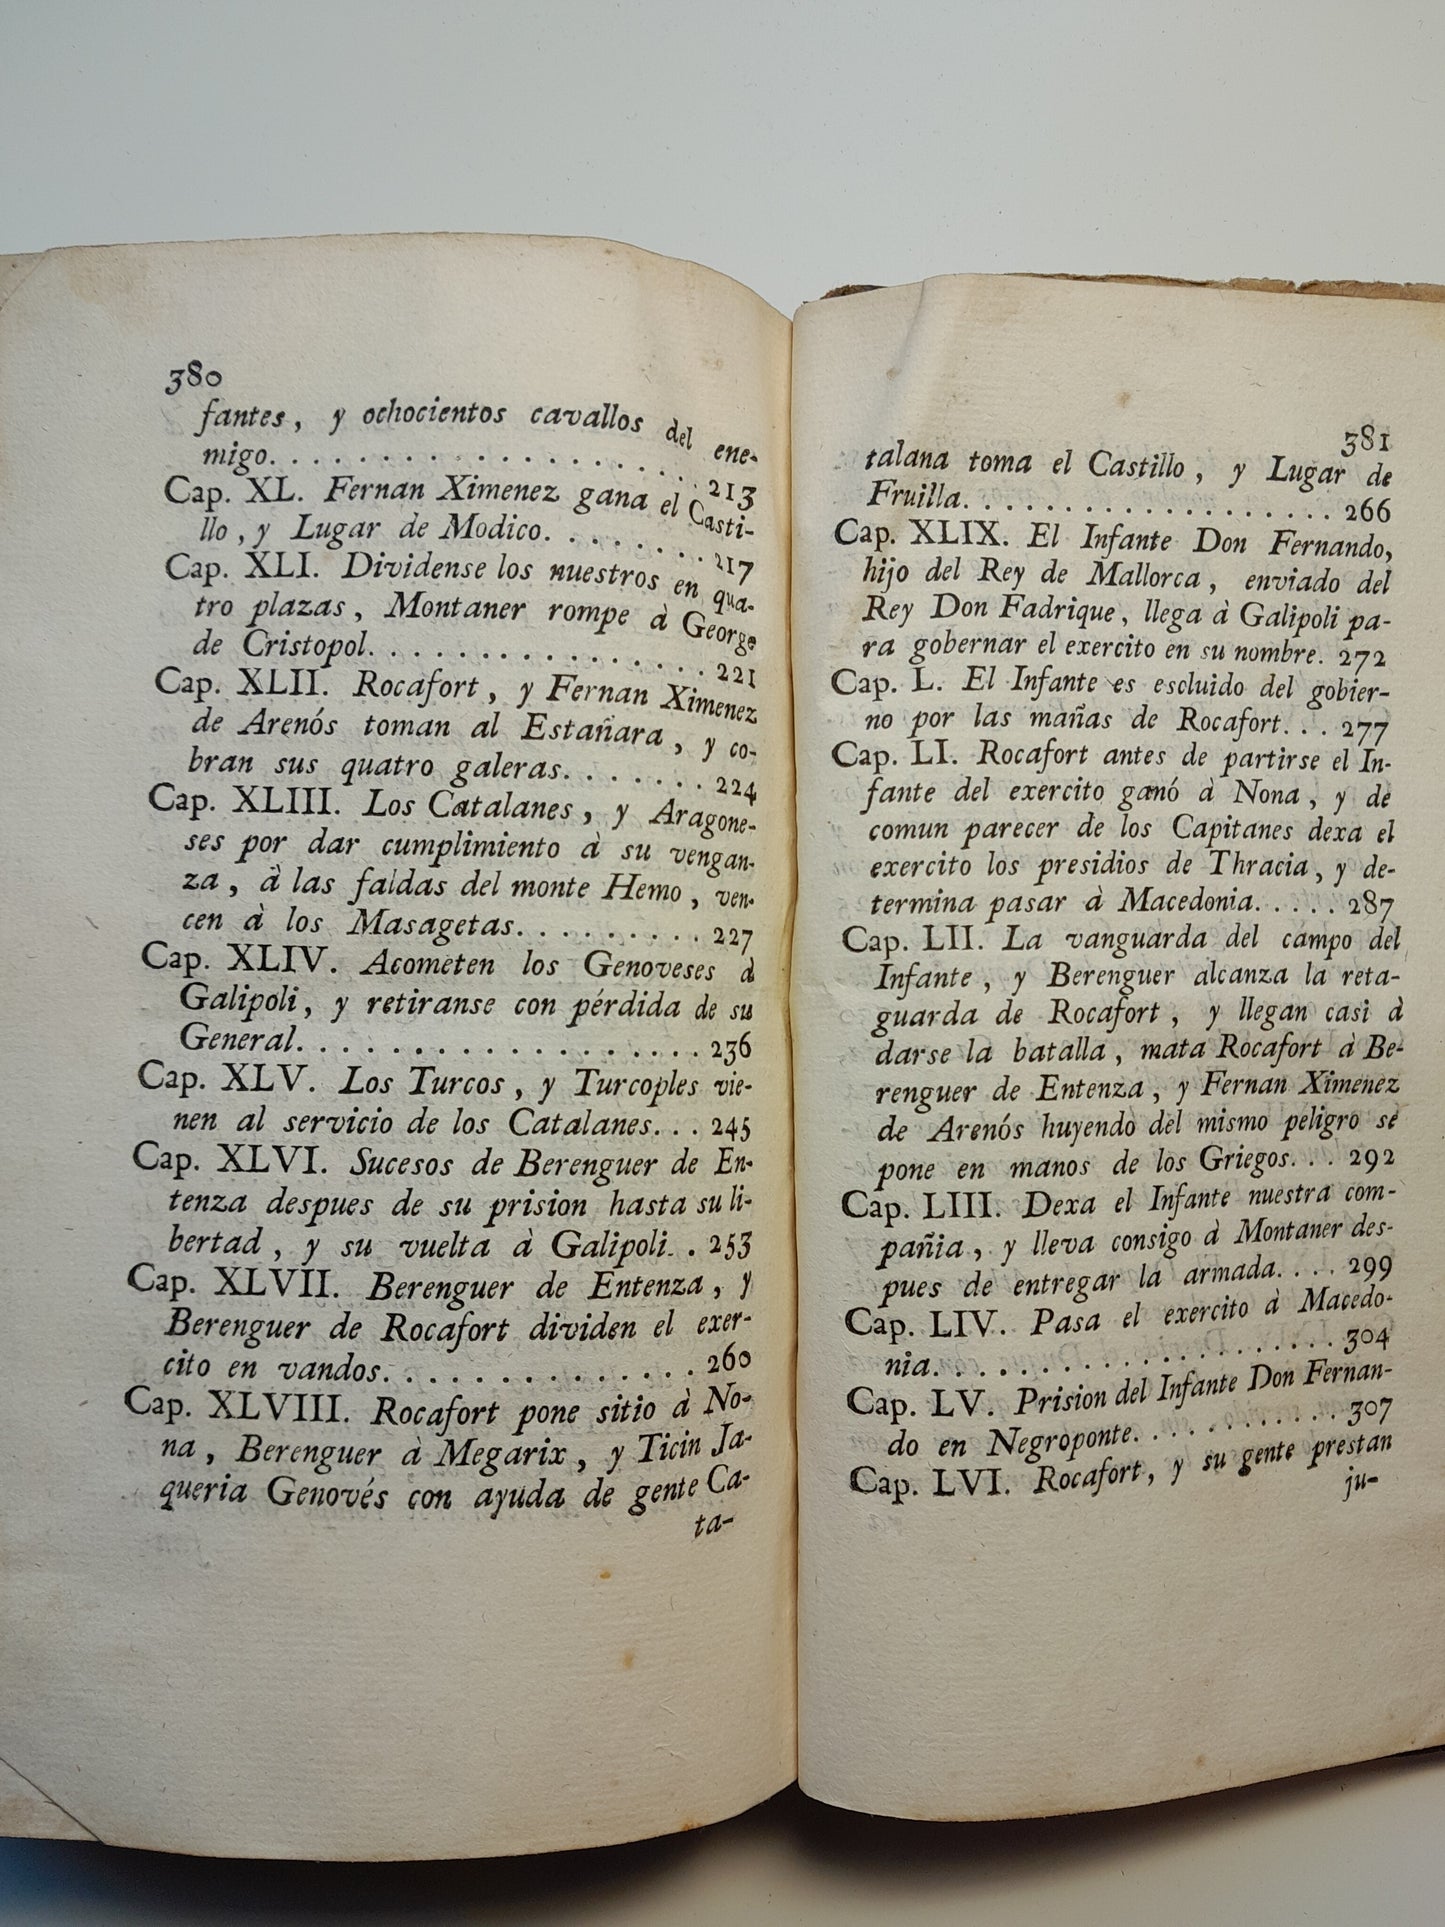 380
fantes, y ochocientos cavallos del ene-
migo. . . . . . . . . . . . . . . . . . . 213
Cap. XL. Fernan Ximenez gana el Casti-
llo, y Lugar de Modico. . . . . . . . . 217
Cap. XLI. Dividense los nuestros en qua-
tro plazas, Montaner rompe à George
de Cristopol. . . . . . . . . . . . . . . . 221
Cap. XLII. Rocafort, y Fernan Ximenez
de Arenós toman al Estañara, y co-
bran sus quatro galeras. . . . . . . . 224
Cap. XLIII. Los Catalanes, y Aragone-
ses por dar cumplimiento à su vengan-
za, à las faldas del monte Hemo, ven-
cen à los Masagetas. . . . . . . . . . 227
Cap. XLIV. Acometen los Genoveses à
Galipoli, y retiranse con pérdida de su
General. . . . . . . . . . . . . . . . . . . 236
Cap. XLV. Los Turcos, y Turcoples vie-
nen al servicio de los Catalanes. . . 245
Cap. XLVI. Sucesos de Berenguer de En-
tenza despues de su prision hasta su li-
bertad, y su vuelta à Galipoli. . 253
Cap. XLVII. Berenguer de Entenza, y
Berenguer de Rocafort dividen el exer-
cito en vandos. . . . . . . . . . . . . . 260
Cap. XLVIII. Rocafort pone sitio à No-
na, Berenguer à Megarix, y Ticin Ja-
queria Genovés con ayuda de gente Ca-
ta-
381
talana toma el Castillo, y Lugar de
Fruilla. . . . . . . . . . . . . . . . . . . 266
Cap. XLIX. El Infante Don Fernando,
hijo del Rey de Mallorca, enviado del
Rey Don Fadrique, llega à Galipoli pa-
ra gobernar el exercito en su nombre. 272
Cap. L. El Infante es escluido del gobier-
no por las mañas de Rocafort. . . 277
Cap. LI. Rocafort antes de partirse el In-
fante del exercito ganó à Nona, y de
comun parecer de los Capitanes dexa el
exercito los presidios de Thracia, y de-
termina pasar à Macedonia. . . . . 287
Cap. LII. La vanguarda del campo del
Infante, y Berenguer alcanza la reta-
guarda de Rocafort, y llegan casi à
darse la batalla, mata Rocafort à Be-
renguer de Entenza, y Fernan Ximenez
de Arenós huyendo del mismo peligro se
pone en manos de los Griegos. . . 292
Cap. LIII. Dexa el Infante nuestra com-
pañia, y lleva consigo à Montaner des-
pues de entregar la armada. . . . 299
Cap. LIV. Pasa el exercito à Macedo-
nia. . . . . . . . . . . . . . . . . . . . . 304
Cap. LV. Prision del Infante Don Fernan-
do en Negroponte. . . . . . . . . . . 307
Cap. LVI. Rocafort, y su gente prestan
ju-